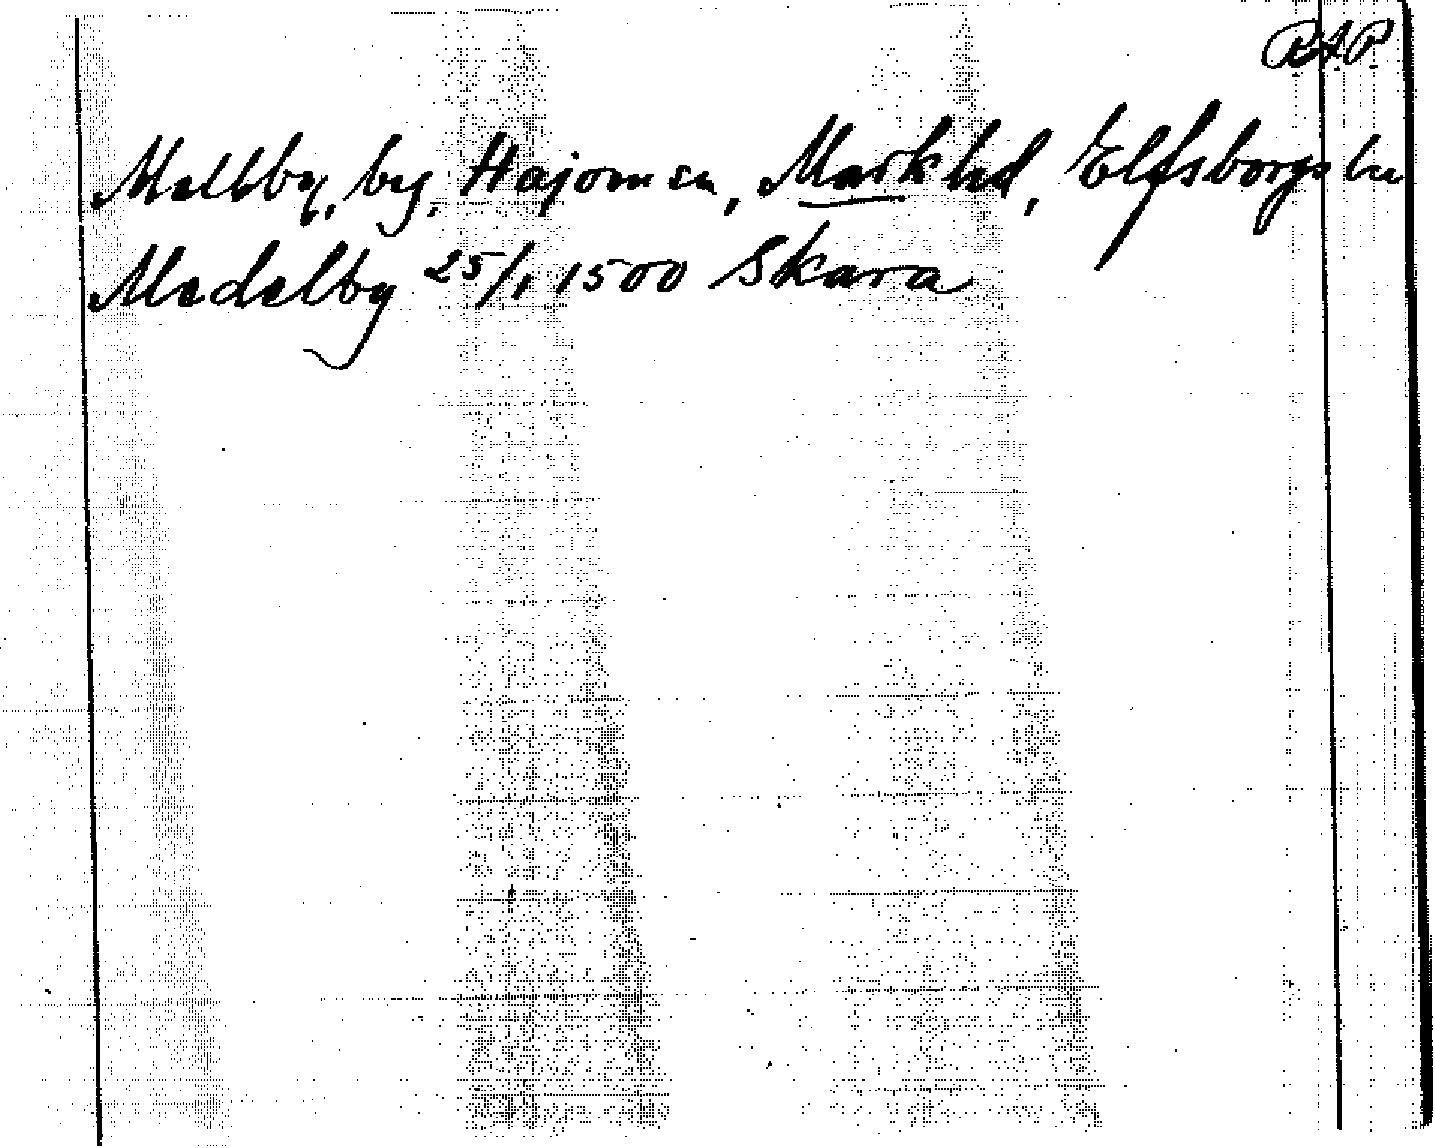 RAP
Mellby, by, Hajom sn, Mark hd, Elfsborgs län
Medelby 25/1 1500 Skara